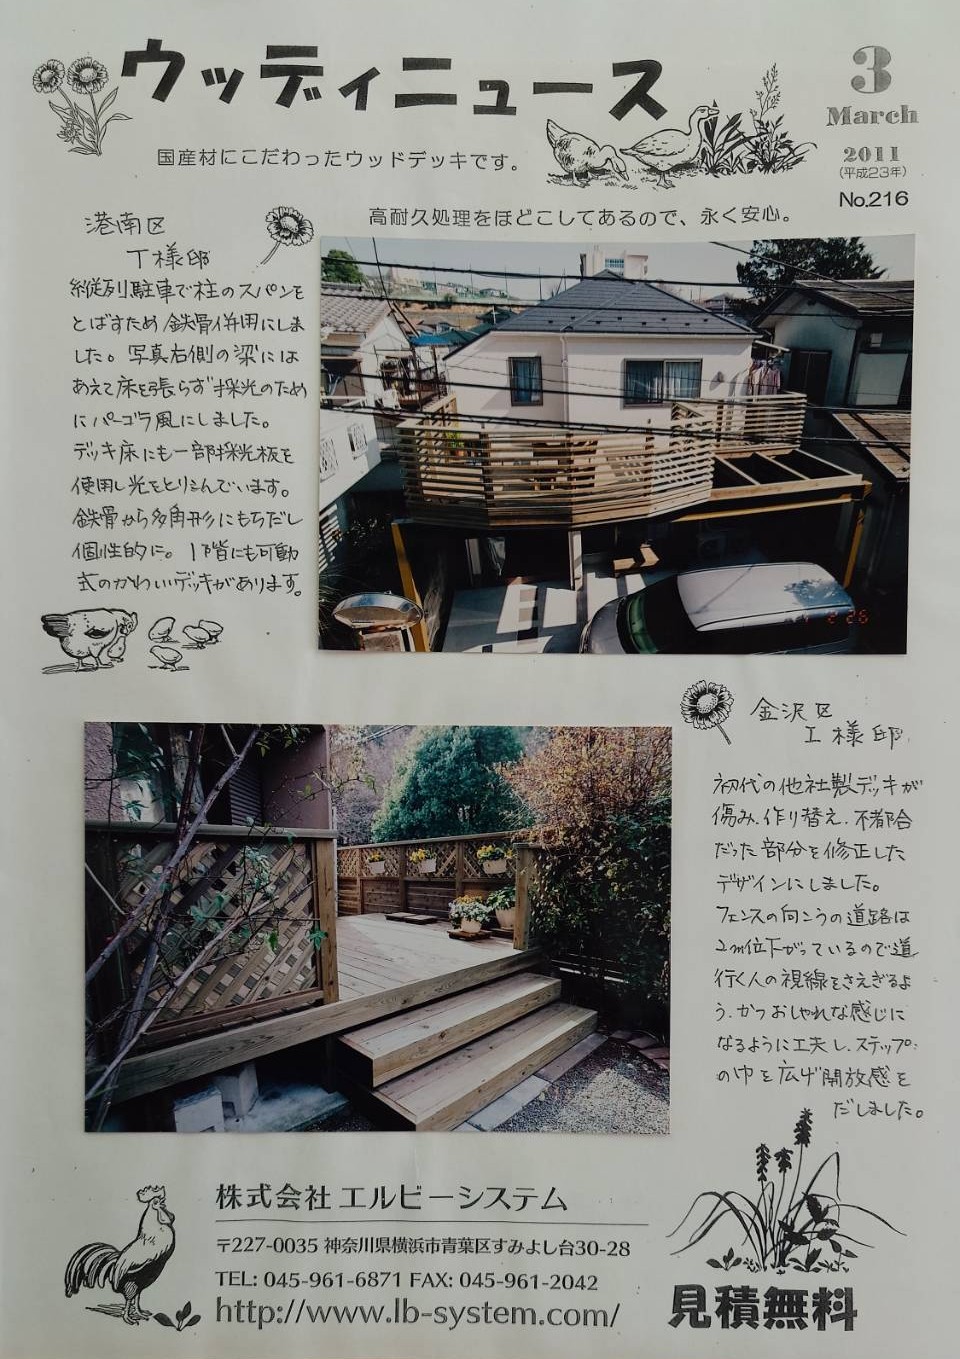 ウッディニュース
3
March
2011
(平成23年)
No.216
国産材にこだわったウッドデッキです。
高耐久処理をほどこしてあるので、永く安心。
港南区
T様邸
縦列駐車で柱のスパンを
とばすため鉄骨併用にしま
した。写真右側の梁には
あえて床を張らず採光のため
にパーゴラ風にしました。
デッキ床にも一部採光板を
使用し光をとりこんでいます。
鉄骨から多角形にもちだし
個性的に。1階にも可動
式のかわいいデッキがあります。
2 26
金沢区
I様邸
初代の他社製デッキが
傷み、作り替え、不都合
だった部分を修正した
デザインにしました。
フェンスの向こうの道路は
2m位下がっているので道
行く人の視線をさえぎるよ
う、かつおしゃれな感じに
なるように工夫し、ステップ
の巾を広げ開放感を
だしました。
株式会社 エルビーシステム
〒227-0035 神奈川県横浜市青葉区すみよし台30-28
TEL: 045-961-6871 FAX: 045-961-2042
http://www.lb-system.com/
見積無料